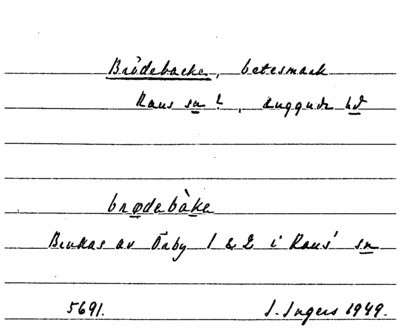 Brödebacke, betesmark
Raus sn ?, Luggude hd
brødabàka
Brukas av Örby 1 & 2 i Raus' sn
5691. I. Ingers 1949.